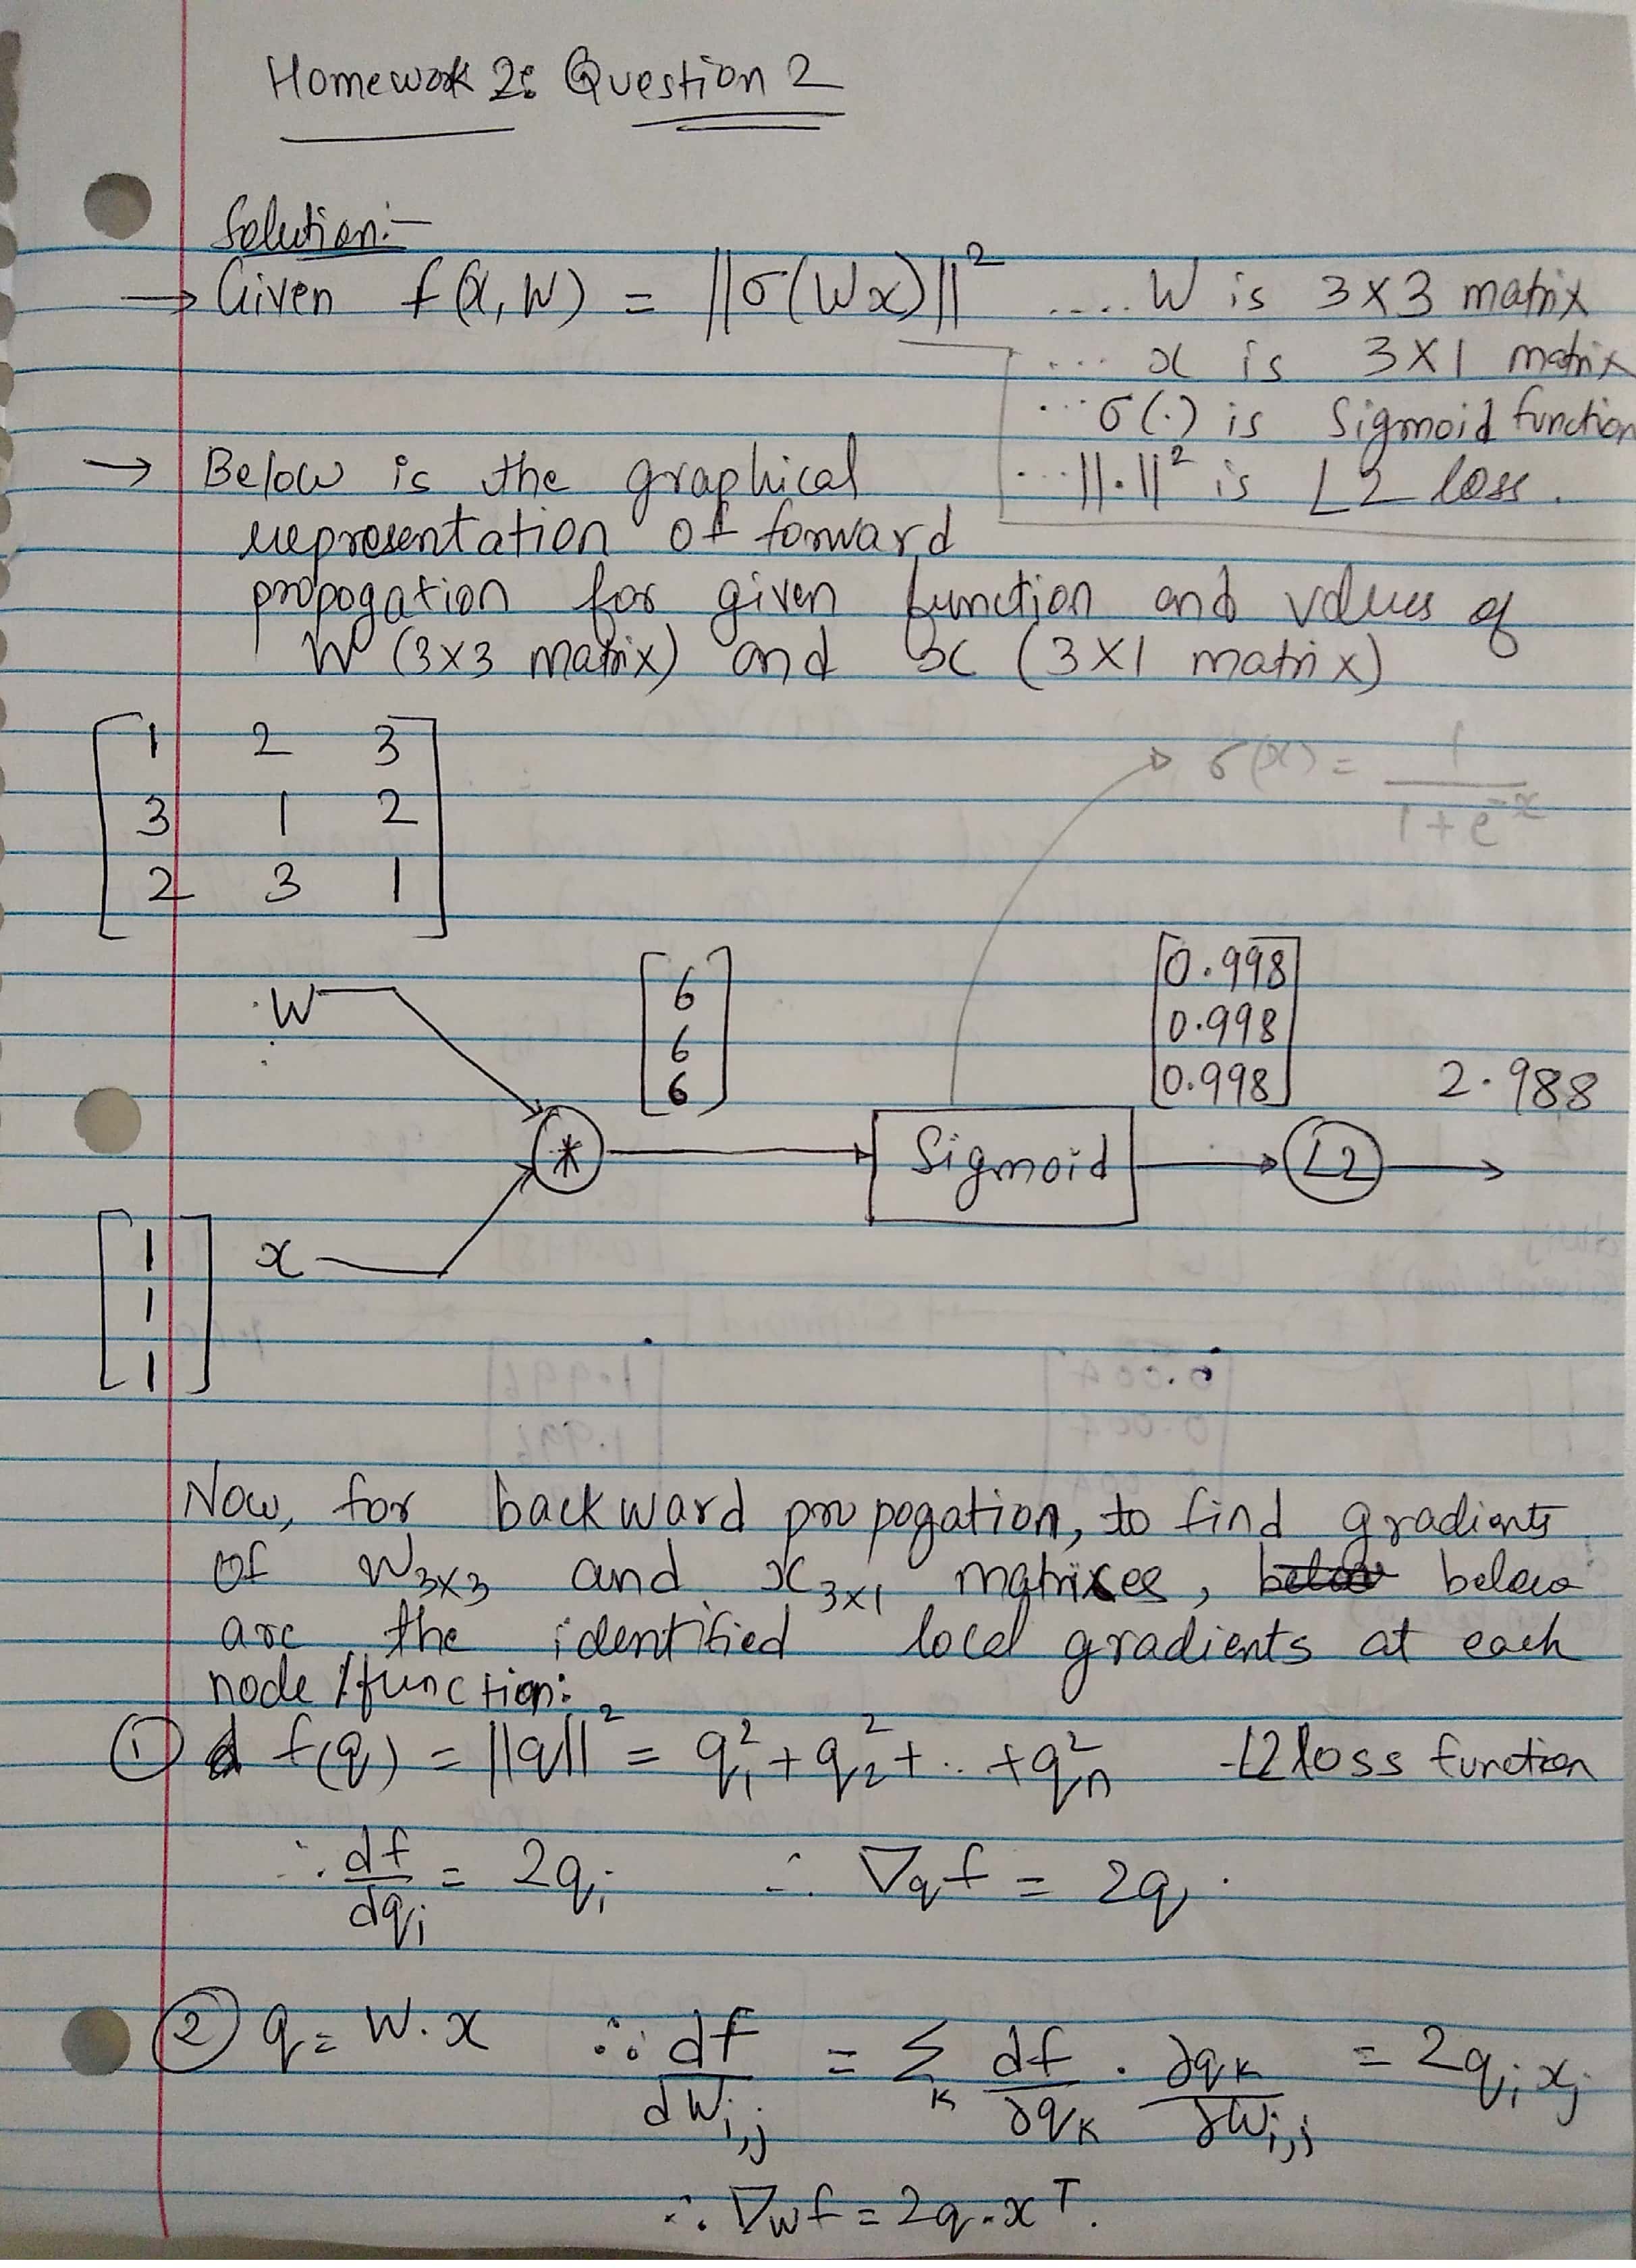 Homework 2: Question 2
Solution:-
→ Given f(x, W) = ||σ(Wx)||² .... W is 3X3 matrix
... x is 3X1 matrix
... σ(.) is Sigmoid function
... ||.||² is L2 loss.
→ Below is the graphical
representation of forward
propogation for given function and values of
W (3x3 matrix) and x (3X1 matrix)
1 2 3
3 1 2
2 3 1
σ(x) = 1 / (1 + e^-x)
W
6
6
6
0.998
0.998
0.998
2.988
*
Sigmoid
L2
x
1
1
1
Now, for backward propogation, to find gradients
of W3x3 and x3x1 matrixes, below
are the identified local gradients at each
node/function:
① f(q) = ||q||² = q₁² + q₂² + .. + qₙ² - L2 loss function
∴ df/dqᵢ = 2qᵢ ∴ ∇q f = 2q.
② q = W.x ∴ df/dWi,j = Σk df/∂qk . ∂qk/∂Wi,j = 2qᵢxⱼ
∴ ∇W f = 2q.xᵀ.